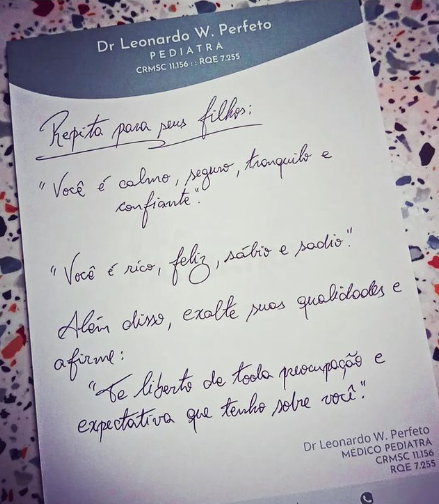 Dr Leonardo W. Perfeto
PEDIATRA
CRMSC 11.156 :: RQE 7.255
Repita para seus filhos:
"Você é calmo, seguro, tranquilo e
confiante".
"Você é rico, feliz, sábio e sadio".
Além disso, exalte suas qualidades e
afirme:
"Te liberto de toda preocupação e
expectativa que tenho sobre você."
Dr Leonardo W. Perfeto
MÉDICO PEDIATRA
CRMSC 11.156
RQE 7.255